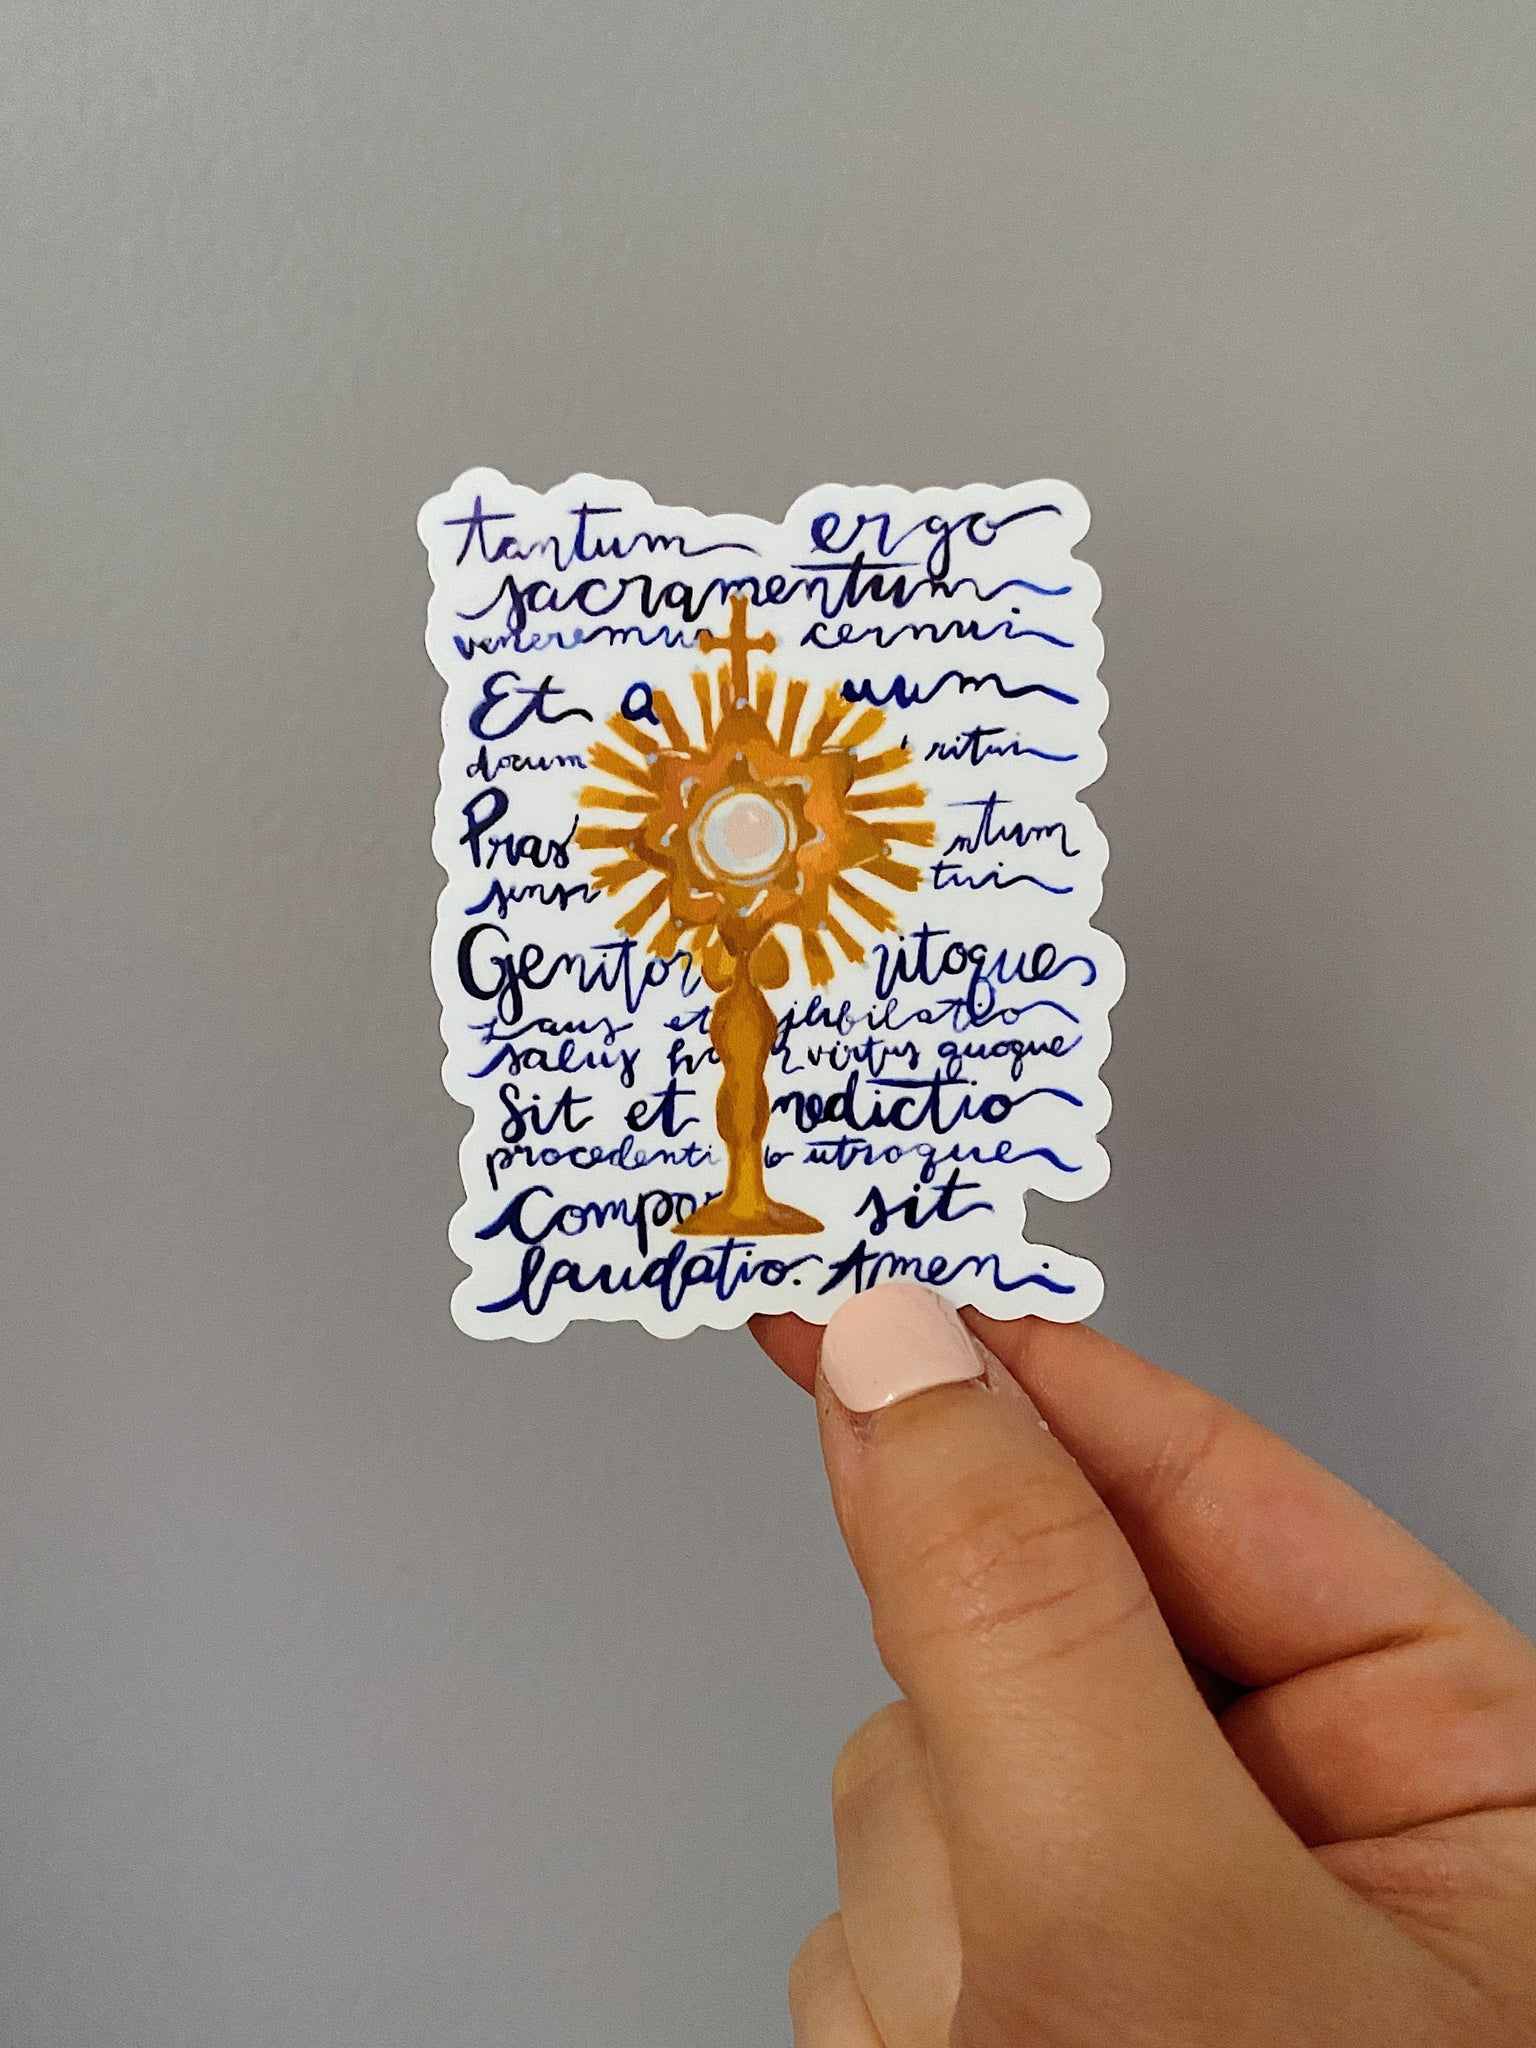 tantum ergo
sacramentum
veneremu cernui
Et a uum
docum ritui
Pras ntum
sensu tui
Genitor itoque
Laus et jubilatio
salus ho r virtus quoque
Sit et nedictio
procedenti b utroque
Compar sit
laudatio. Amen.